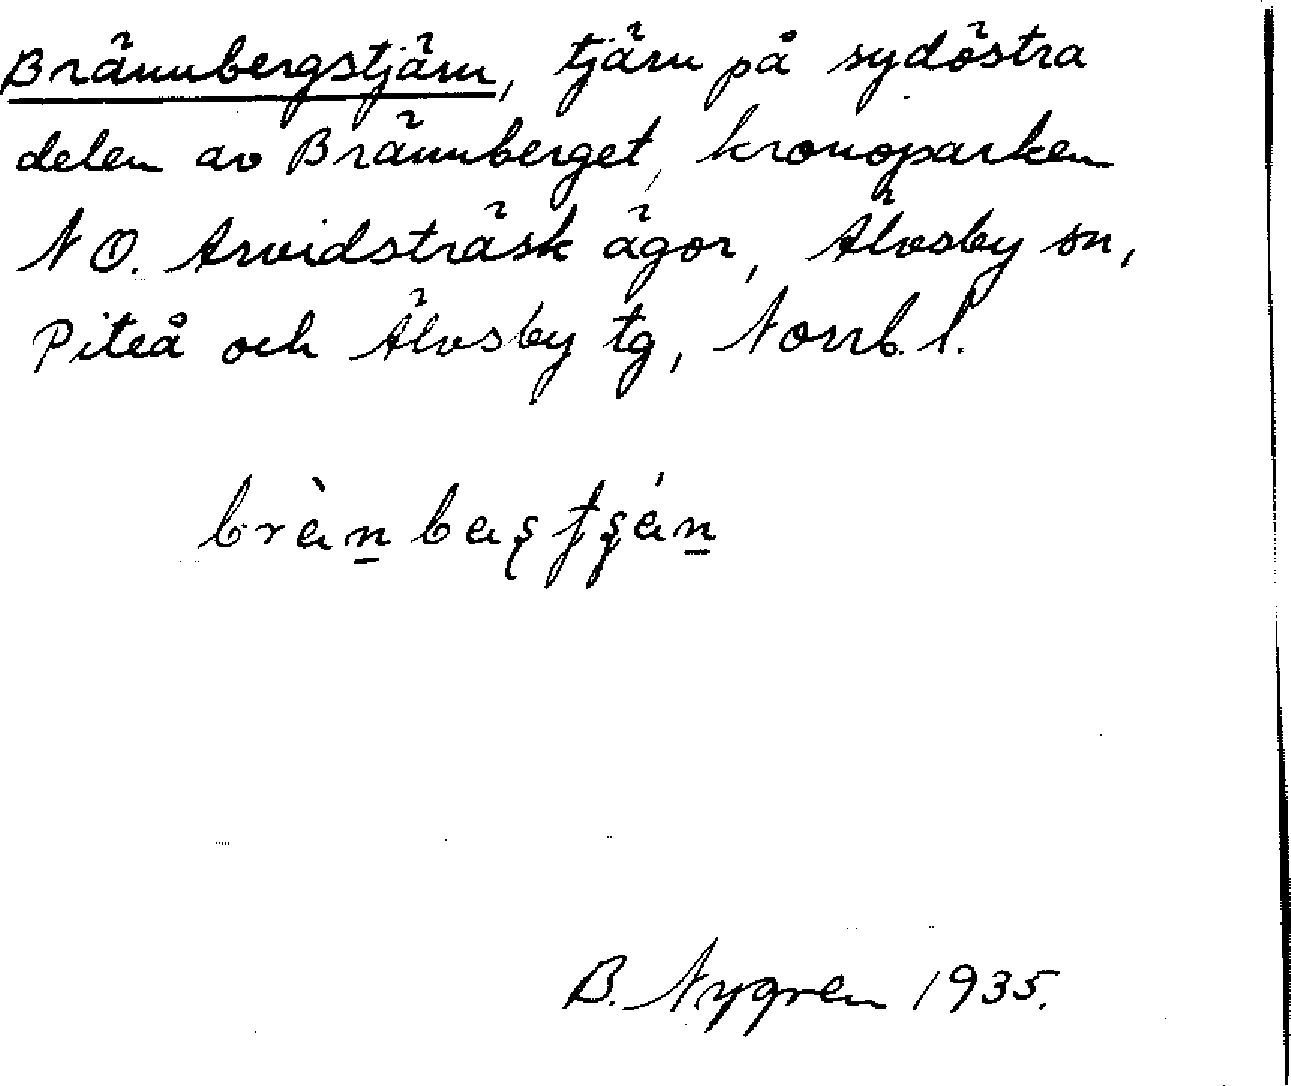 Brännbergstjärn, tjärn på sydöstra
delen av Brännberget, kronoparken
NO. Arvidsträsk ägor, Älvsby sn,
Piteå och Älvsby tg, Norrb. l.
B. Nygren 1935.